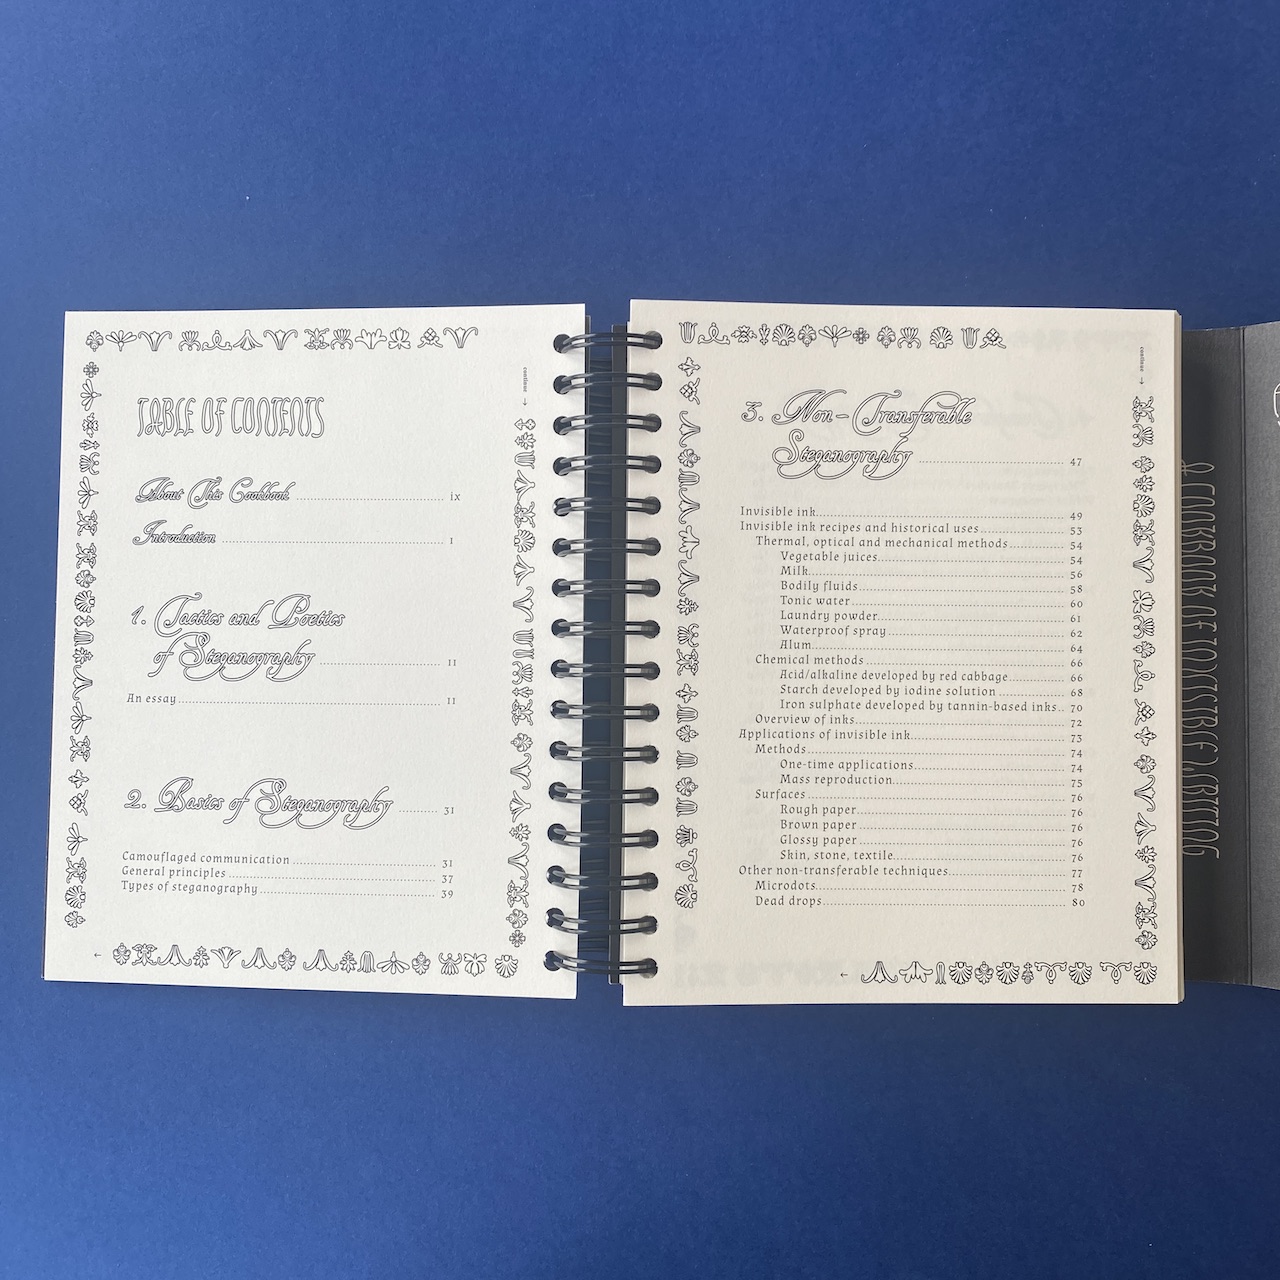 continue →
TABLE OF CONTENTS
About This Cookbook ix
Introduction 1
1. Tactics and Poetics
of Steganography 11
An essay 11
2. Basics of Steganography 31
Camouflaged communication 31
General principles 37
Types of steganography 39
←
continue →
3. Non-Transferable
Steganography 47
Invisible ink 49
Invisible ink recipes and historical uses 53
Thermal, optical and mechanical methods 54
Vegetable juices 54
Milk 56
Bodily fluids 58
Tonic water 60
Laundry powder 61
Waterproof spray 62
Alum 64
Chemical methods 66
Acid/alkaline developed by red cabbage 66
Starch developed by iodine solution 68
Iron sulphate developed by tannin-based inks 70
Overview of inks 72
Applications of invisible ink 73
Methods 74
One-time applications 74
Mass reproduction 75
Surfaces 76
Rough paper 76
Brown paper 76
Glossy paper 76
Skin, stone, textile 76
Other non-transferable techniques 77
Microdots 78
Dead drops 80
←
A COOKBOOK OF INVISIBLE WRITING